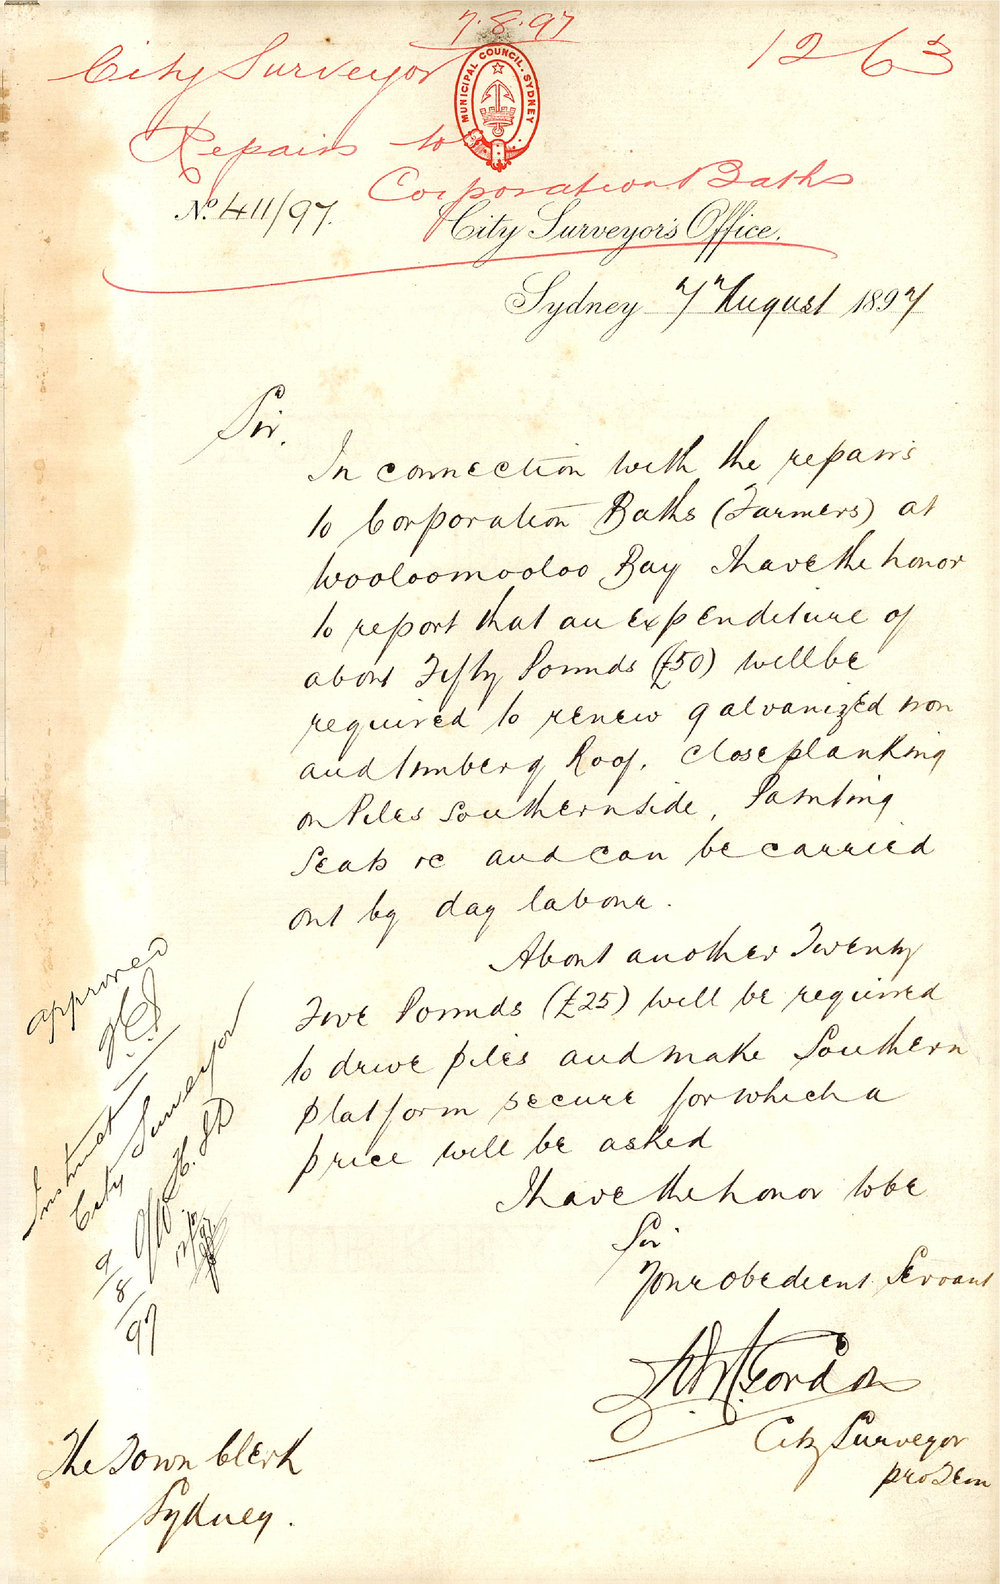 7.8.97
City Surveyor
1263
MUNICIPAL COUNCIL. SYDNEY
Repairs to
Corporation Baths
No. 411/97.
City Surveyor's Office.
Sydney 7 August 1897
Sir.
In connection with the repairs
to Corporation Baths (Farmers) at
Wooloomooloo Bay I have the honor
to report that an expenditure of
about Fifty Pounds (£50) will be
required to renew galvanized iron
and timber of Roof. Close planking
on Piles Southern side, Painting
Seats &c and can be carried
out by day labour.
About another Twenty
Five Pounds (£25) will be required
to drive piles and make Southern
platform secure for which a
price will be asked
I have the honor to be
Sir
Your obedient Servant
Gordon
City Surveyor
pro Tem
The Town Clerk
Sydney.
approved
Instruct
City Surveyor
9/8/97